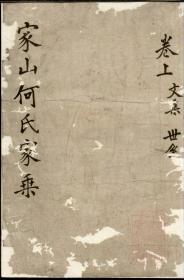 家山何氏家乘
卷上 文集 世系